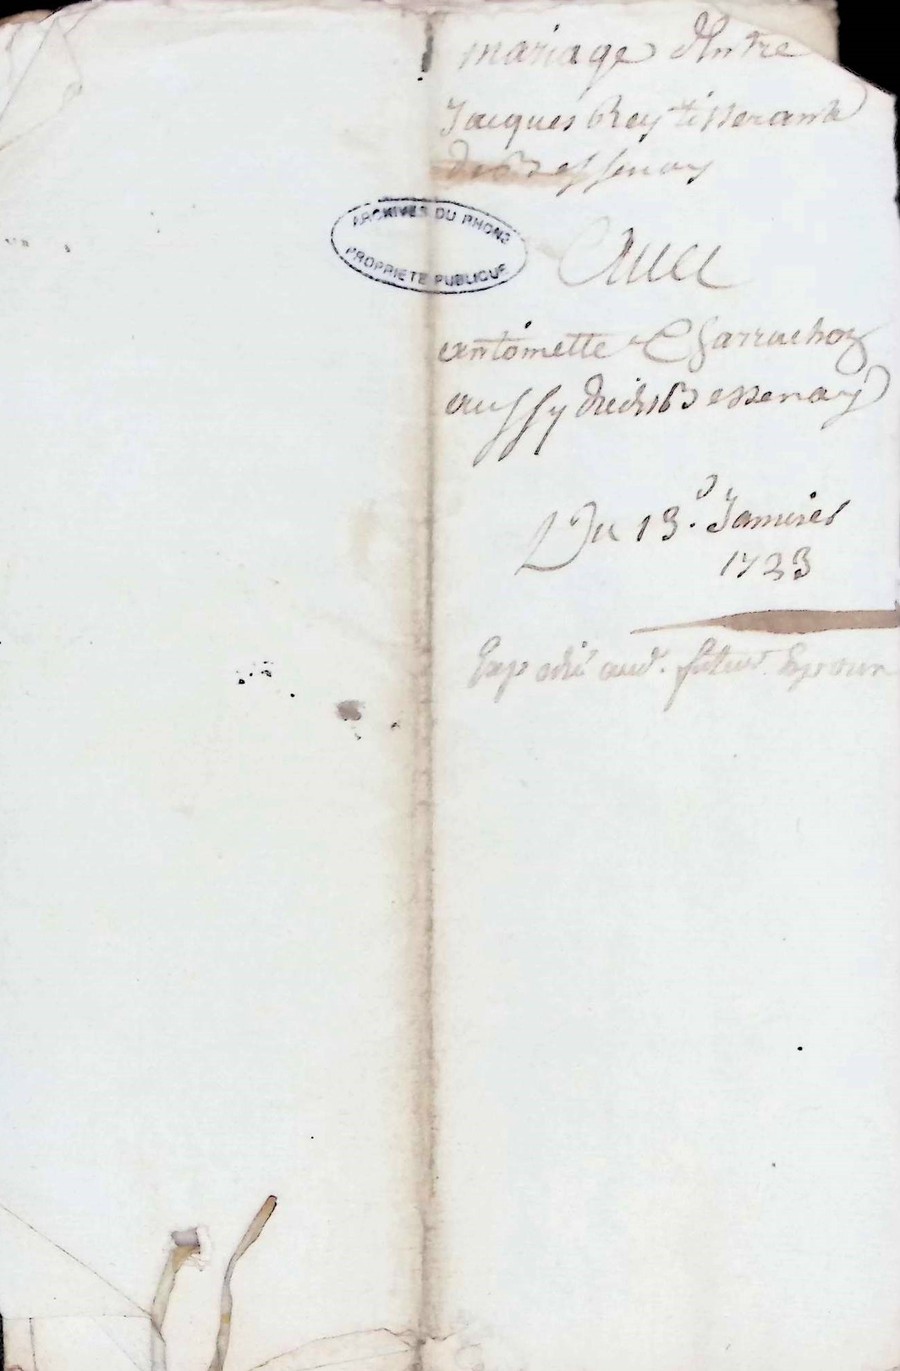 mariage Entre
Jacques Rey tisserand
de Bessenay
ARCHIVES DU RHONE
PROPRIETE PUBLIQUE
Avec
antoinette Charrachon
aussy dud. Bessenay
Du 13.e Janvier
1723
Expedié aud. futur Epoux